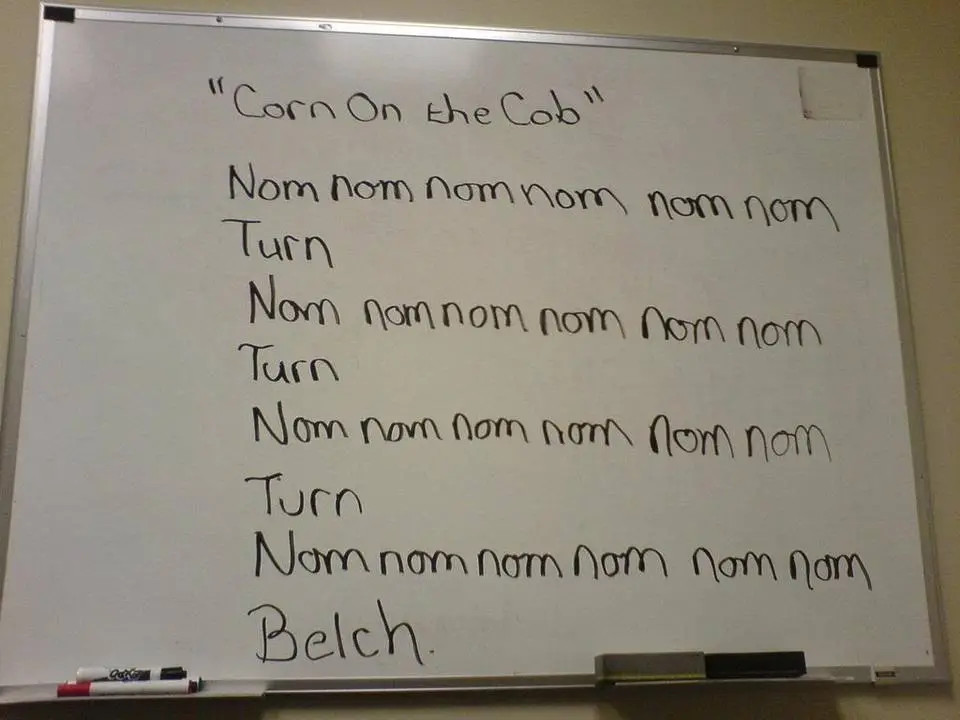 "Corn On the Cob"
Nom nom nom nom nom nom
Turn
Nom nom nom nom nom nom
Turn
Nom nom nom nom nom nom
Turn
Nom nom nom nom nom nom
Belch.